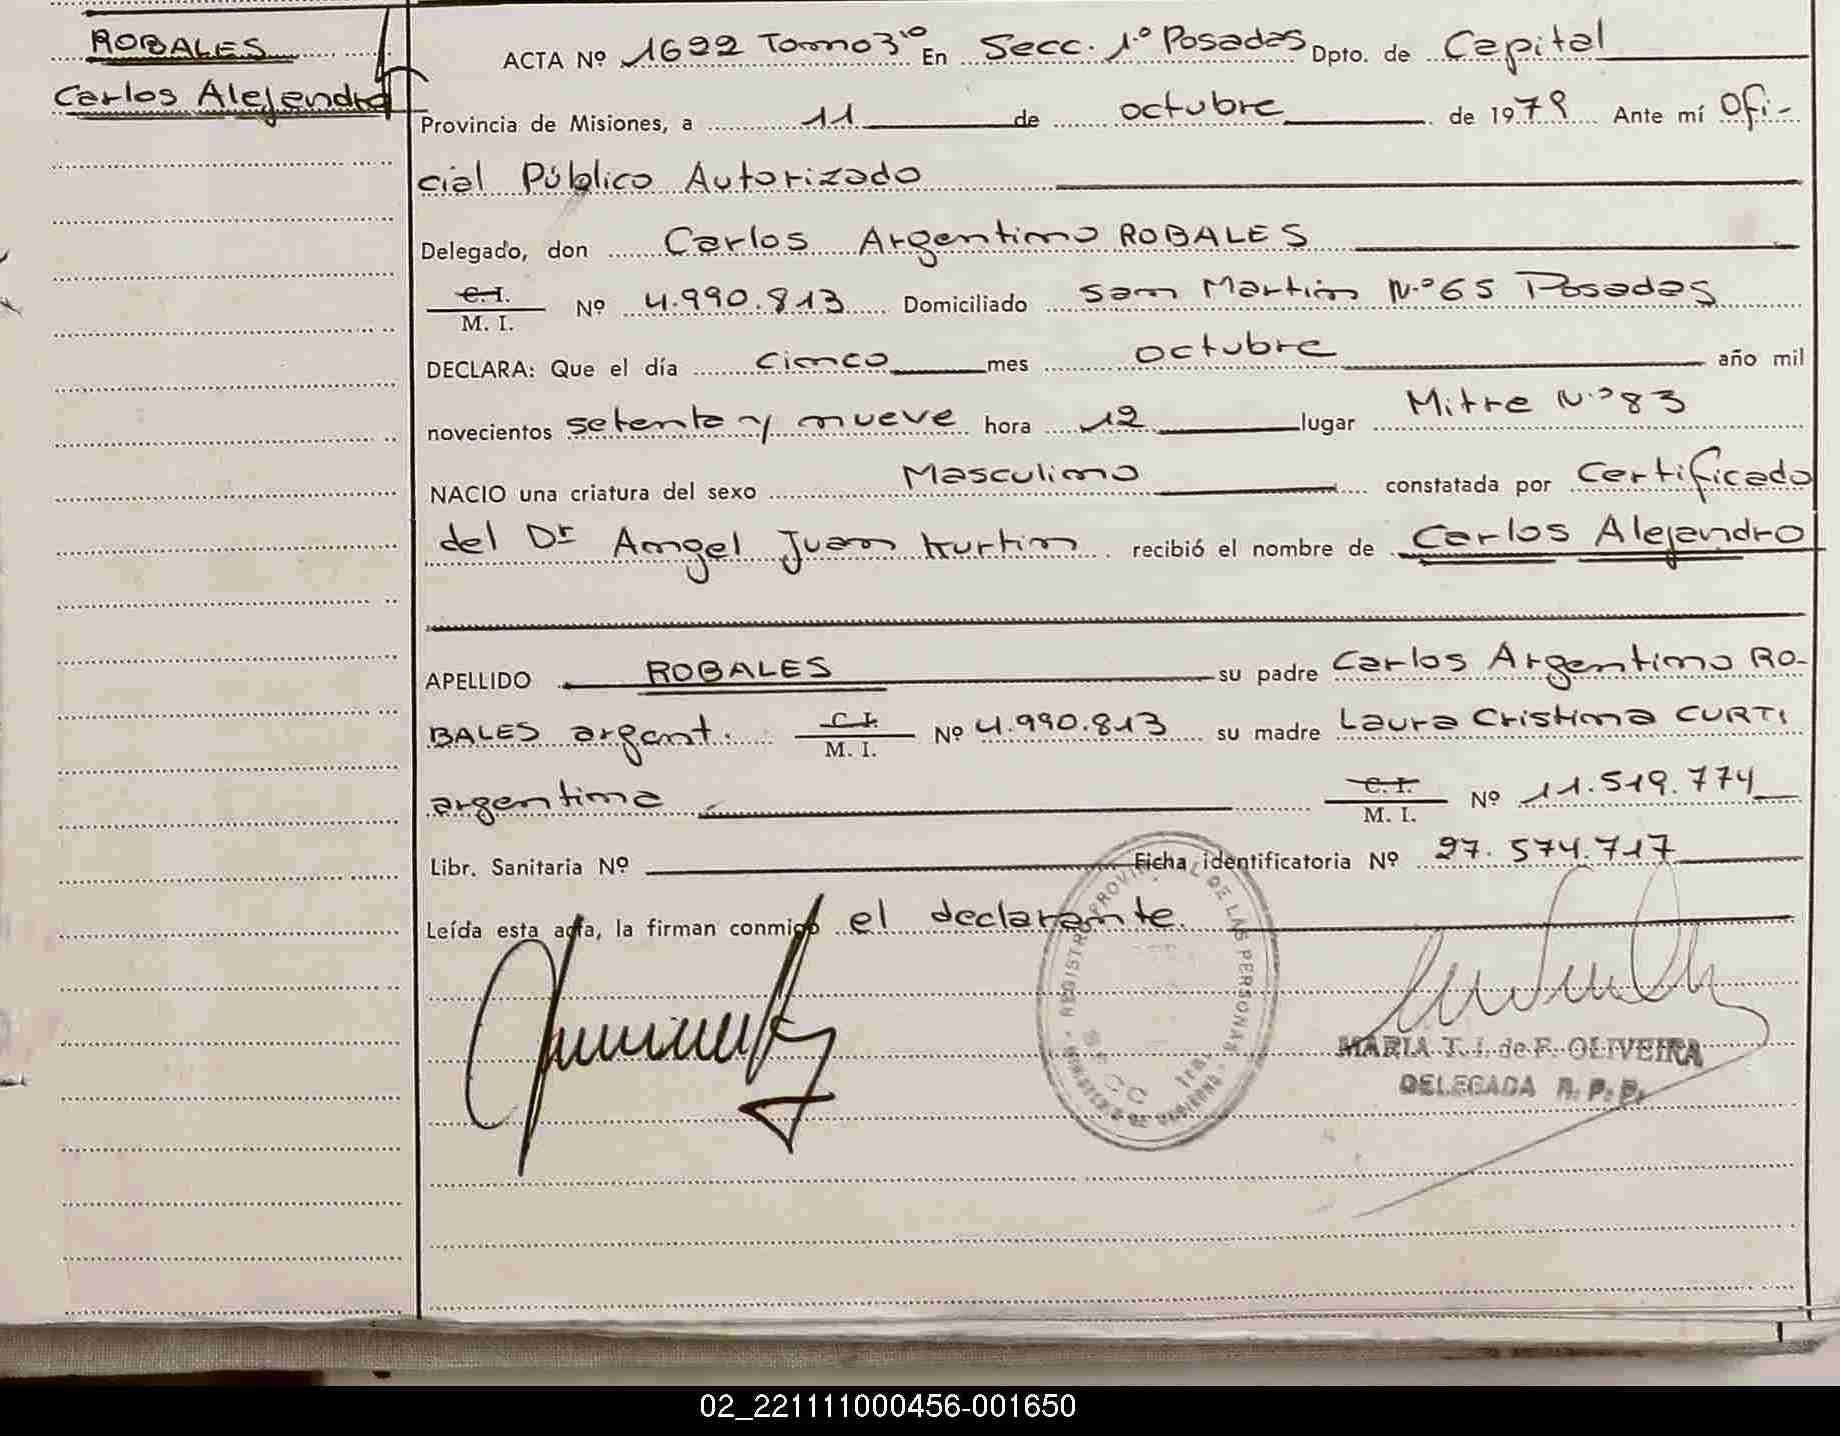 ROBALES
Carlos Alejandro
ACTA Nº 1622 Tomo 3ro En Secc. 1º Posadas Dpto. de Capital
Provincia de Misiones, a 11 de octubre de 1979 Ante mí Ofi-
cial Público Autorizado
Delegado, don Carlos Argentino ROBALES
C.I.
M. I.
Nº 4.990.813 Domiciliado San Martin N.º 65 Posadas
DECLARA: Que el día cinco mes octubre año mil
novecientos setenta y nueve hora 12 lugar Mitre N.º 83
NACIO una criatura del sexo Masculino constatada por Certificado
del Dr Angel Juan Kurtin recibió el nombre de Carlos Alejandro
APELLIDO ROBALES su padre Carlos Argentino RO-
BALES argent. C.I. M. I. Nº 4.990.813 su madre Laura Cristina CURTI
argentina C.I. M. I. Nº 11.519.774
Libr. Sanitaria Nº Ficha identificatoria Nº 27.574.717
Leída esta acta, la firman conmigo el declarante.
REGISTRO PROVINCIAL DE LAS PERSONAS
MINISTERIO DE GOBIERNO
SECC 1ra
MARIA T. I. de F. OLIVEIRA
DELEGADA R. P. P.
02_221111000456-001650